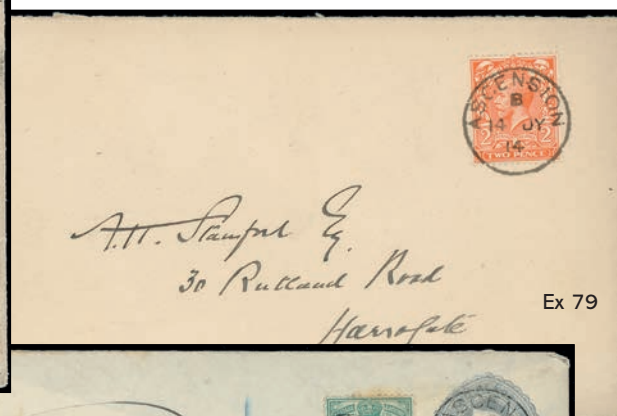 ASCENSION
B
14 JY
14
2 2
TWO PENCE
A.H. Stamford Esq.
30 Rutland Road
Harrogate
Ex 79
ASCEN